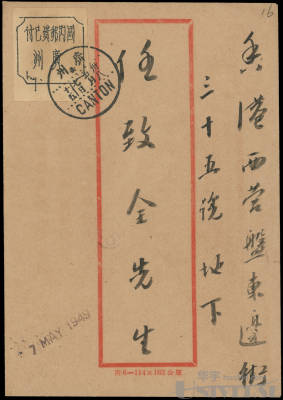 16
香港西营盤東邊街
三十五號地下
任致全先生
國內郵資已付
廣州
廣州
CANTON
7 MAY 1949